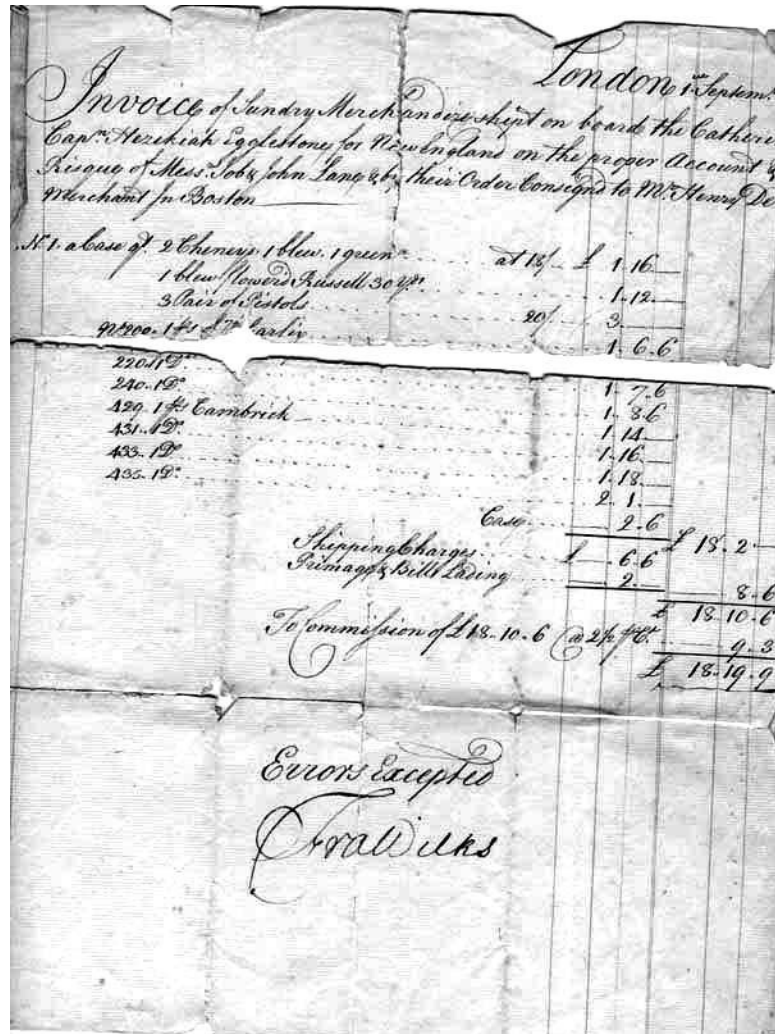 London 1st Septem
Invoice of Sundry Merchandize shipt on board the Catheri
Capn. Hezekiah Egglestone for New England on the proper Account &
Risque of Messrs. Job & John Lane & by their Order Consign'd to Mr. Henry De
Merchant In Boston
No. 1. a Case qt. 2 Cheneys 1 blew. 1 green at 18/ £ 1.16
1 blew flowerd Russell 30 Yds 1.12
3 Pair of Pistols 20/ 3
No 200. 1 ps Garlix 1.6.6
220. 1 Do. 1.7.6
240. 1 Do. 1.8.6
429. 1 ps Cambrick 1.14
431. 1 Do. 1.16
433. 1 Do. 1.18
435. 1 Do. 2.1
Case 2.6
£ 18.2
Shipping Charges £ 6.6
Primage & Bills Lading 2 8.6
£ 18.10.6
To Commission of £18.10.6 @ 2½ pr Ct. 9.3
£ 18.19.9
Errors Excepted
Fra Wilks